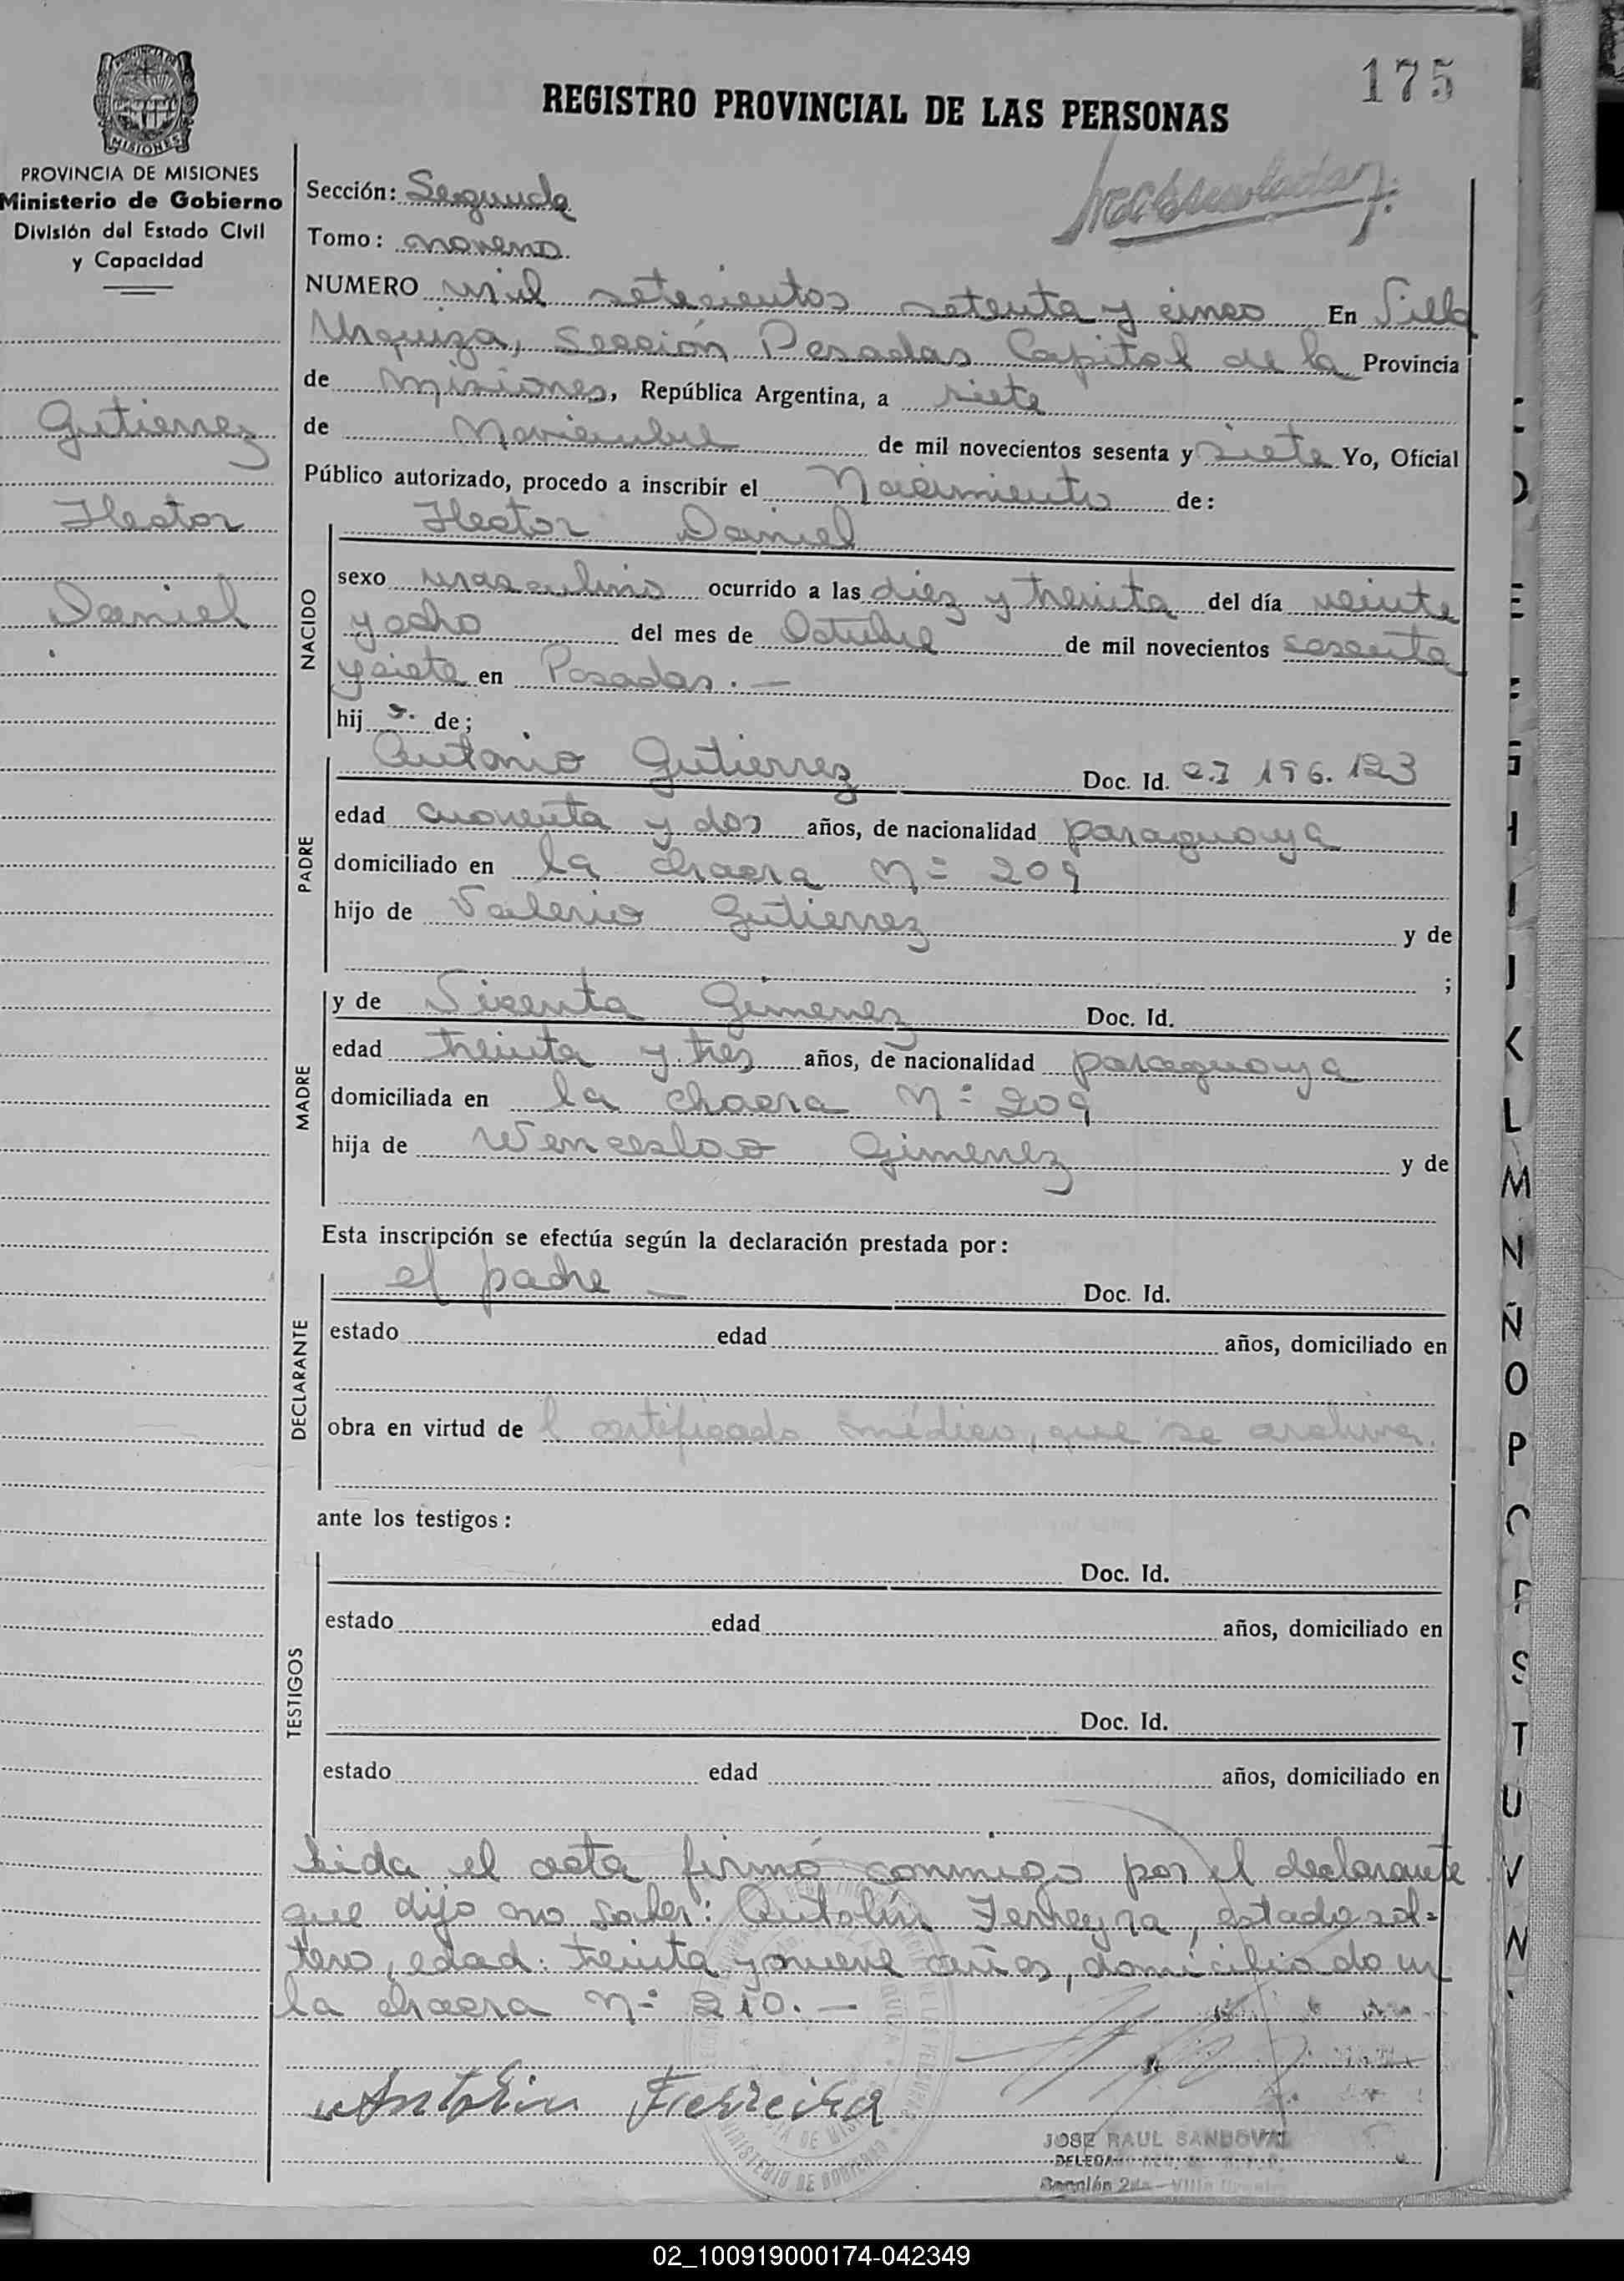 175
REGISTRO PROVINCIAL DE LAS PERSONAS
MISIONES
PROVINCIA DE MISIONES
Ministerio de Gobierno
División del Estado Civil
y Capacidad
Gutierrez
Hector
Daniel
Sección: Segunda
Tomo: noveno
NUMERO mil setecientos setenta y cinco En Villa
Urquiza, Sección Posadas Capital de la Provincia
de Misiones, República Argentina, a siete
de Noviembre de mil novecientos sesenta y siete Yo, Oficial
Público autorizado, procedo a inscribir el Nacimiento de:
NACIDO
Hector Daniel
sexo masculino ocurrido a las diez y treinta del día veinte
y ocho del mes de Octubre de mil novecientos sesenta
y siete en Posadas. —
hij o. de;
PADRE
Antonio Gutierrez Doc. Id. C.I 196.123
edad cuarenta y dos años, de nacionalidad paraguaya
domiciliado en la chacra Nº 209
hijo de Valerio Gutierrez y de
;
MADRE
y de Vicenta Gimenez Doc. Id.
edad treinta y tres años, de nacionalidad paraguaya
domiciliada en la chacra Nº 209
hija de Wenceslao Gimenez y de
Esta inscripción se efectúa según la declaración prestada por:
DECLARANTE
el padre — Doc. Id.
estado edad años, domiciliado en
obra en virtud de l certificado médico, que se archiva.
ante los testigos:
TESTIGOS
Doc. Id.
estado edad años, domiciliado en
Doc. Id.
estado edad años, domiciliado en
Leida el acta firmó conmigo por el declarante
que dijo no saber: Antolín Ferreyra, estado sol=
tero, edad: treinta y nueve años, domiciliado en
la chacra Nº 210. —
Antolin Ferreira
JOSE RAUL SANDOVAL
Sección 2da - Villa
E
G
H
I
J
K
L
M
N
Ñ
O
P
S
T
U
V
02_100919000174-042349